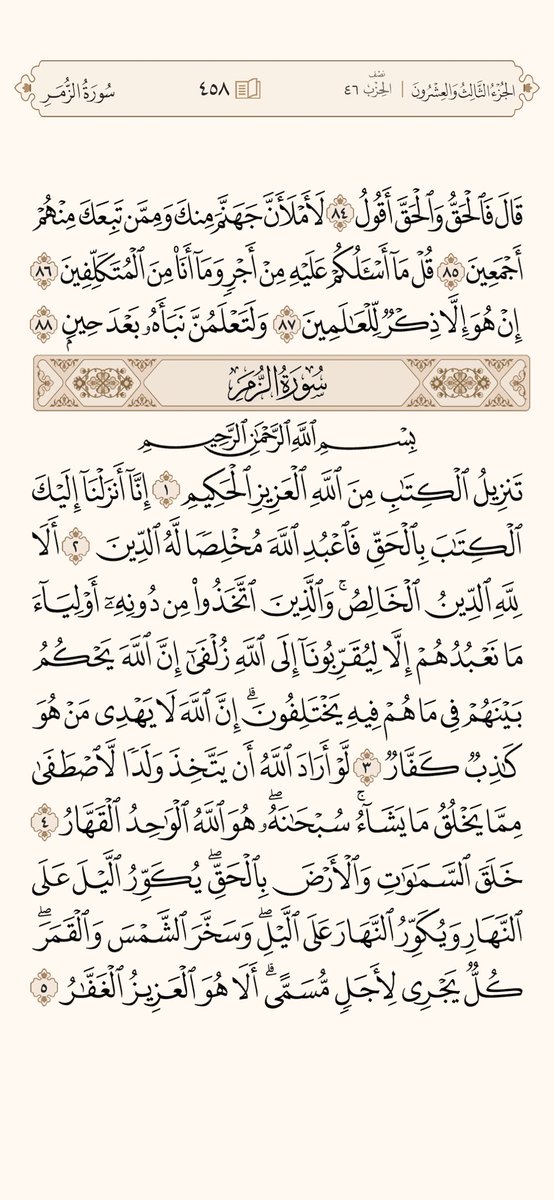 الجُزْءُ الثَّالِثُ وَالعِشْرُونَ | نصف الحِزْب ٤٦ ٤٥٨ سُورَةُ الزُّمَرِ
قَالَ فَٱلْحَقُّ وَٱلْحَقَّ أَقُولُ ٨٤ لَأَمْلَأَنَّ جَهَنَّمَ مِنكَ وَمِمَّن تَبِعَكَ مِنْهُمْ
أَجْمَعِينَ ٨٥ قُلْ مَآ أَسْـَٔلُكُمْ عَلَيْهِ مِنْ أَجْرٍ وَمَآ أَنَا۠ مِنَ ٱلْمُتَكَلِّفِينَ ٨٦
إِنْ هُوَ إِلَّا ذِكْرٌ لِّلْعَـٰلَمِينَ ٨٧ وَلَتَعْلَمُنَّ نَبَأَهُۥ بَعْدَ حِينٍۭ ٨٨
سُورَةُ الزُّمَرِ
بِسْمِ ٱللَّهِ ٱلرَّحْمَـٰنِ ٱلرَّحِيمِ
تَنزِيلُ ٱلْكِتَـٰبِ مِنَ ٱللَّهِ ٱلْعَزِيزِ ٱلْحَكِيمِ ١ إِنَّآ أَنزَلْنَآ إِلَيْكَ
ٱلْكِتَـٰبَ بِٱلْحَقِّ فَٱعْبُدِ ٱللَّهَ مُخْلِصًا لَّهُ ٱلدِّينَ ٢ أَلَا
لِلَّهِ ٱلدِّينُ ٱلْخَالِصُ ۚ وَٱلَّذِينَ ٱتَّخَذُوا۟ مِن دُونِهِۦٓ أَوْلِيَآءَ
مَا نَعْبُدُهُمْ إِلَّا لِيُقَرِّبُونَآ إِلَى ٱللَّهِ زُلْفَىٰٓ إِنَّ ٱللَّهَ يَحْكُمُ
بَيْنَهُمْ فِى مَا هُمْ فِيهِ يَخْتَلِفُونَ ۗ إِنَّ ٱللَّهَ لَا يَهْدِى مَنْ هُوَ
كَـٰذِبٌ كَفَّارٌ ٣ لَّوْ أَرَادَ ٱللَّهُ أَن يَتَّخِذَ وَلَدًا لَّٱصْطَفَىٰ
مِمَّا يَخْلُقُ مَا يَشَآءُ ۚ سُبْحَـٰنَهُۥ ۖ هُوَ ٱللَّهُ ٱلْوَٰحِدُ ٱلْقَهَّارُ ٤
خَلَقَ ٱلسَّمَـٰوَٰتِ وَٱلْأَرْضَ بِٱلْحَقِّ ۖ يُكَوِّرُ ٱلَّيْلَ عَلَى
ٱلنَّهَارِ وَيُكَوِّرُ ٱلنَّهَارَ عَلَى ٱلَّيْلِ ۖ وَسَخَّرَ ٱلشَّمْسَ وَٱلْقَمَرَ ۖ
كُلٌّ يَجْرِى لِأَجَلٍ مُّسَمًّى ۗ أَلَا هُوَ ٱلْعَزِيزُ ٱلْغَفَّـٰرُ ٥